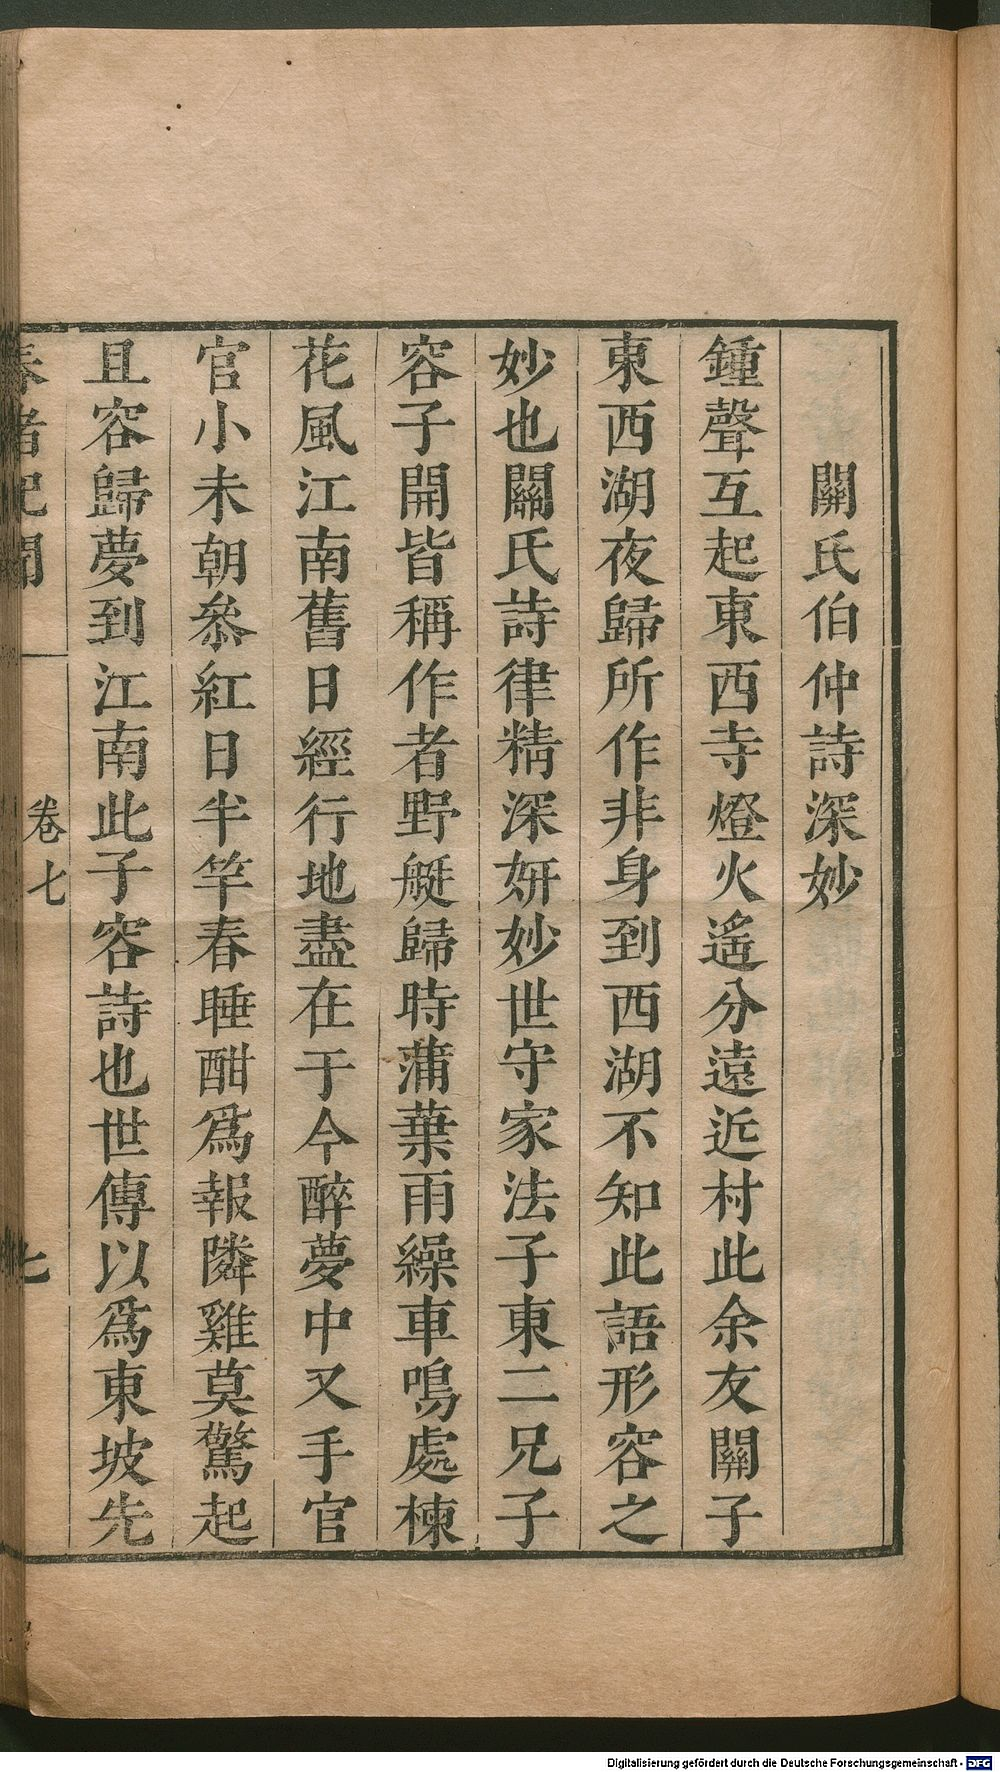 關氏伯仲詩深妙
鍾聲互起東西寺燈火遙分遠近村此余友關子
東西湖夜歸所作非身到西湖不知此語形容之
妙也關氏詩律精深妍妙世守家法子東二兄子
容子開皆稱作者野艇歸時蒲葉雨繰車鳴處楝
花風江南舊日經行地盡在于今醉夢中又手官
官小未朝叅紅日半竿春睡酣爲報隣雞莫驚起
且容歸夢到江南此子容詩也世傳以爲東坡先
春渚紀聞 卷七 七
Digitalisierung gefördert durch die Deutsche Forschungsgemeinschaft - DFG